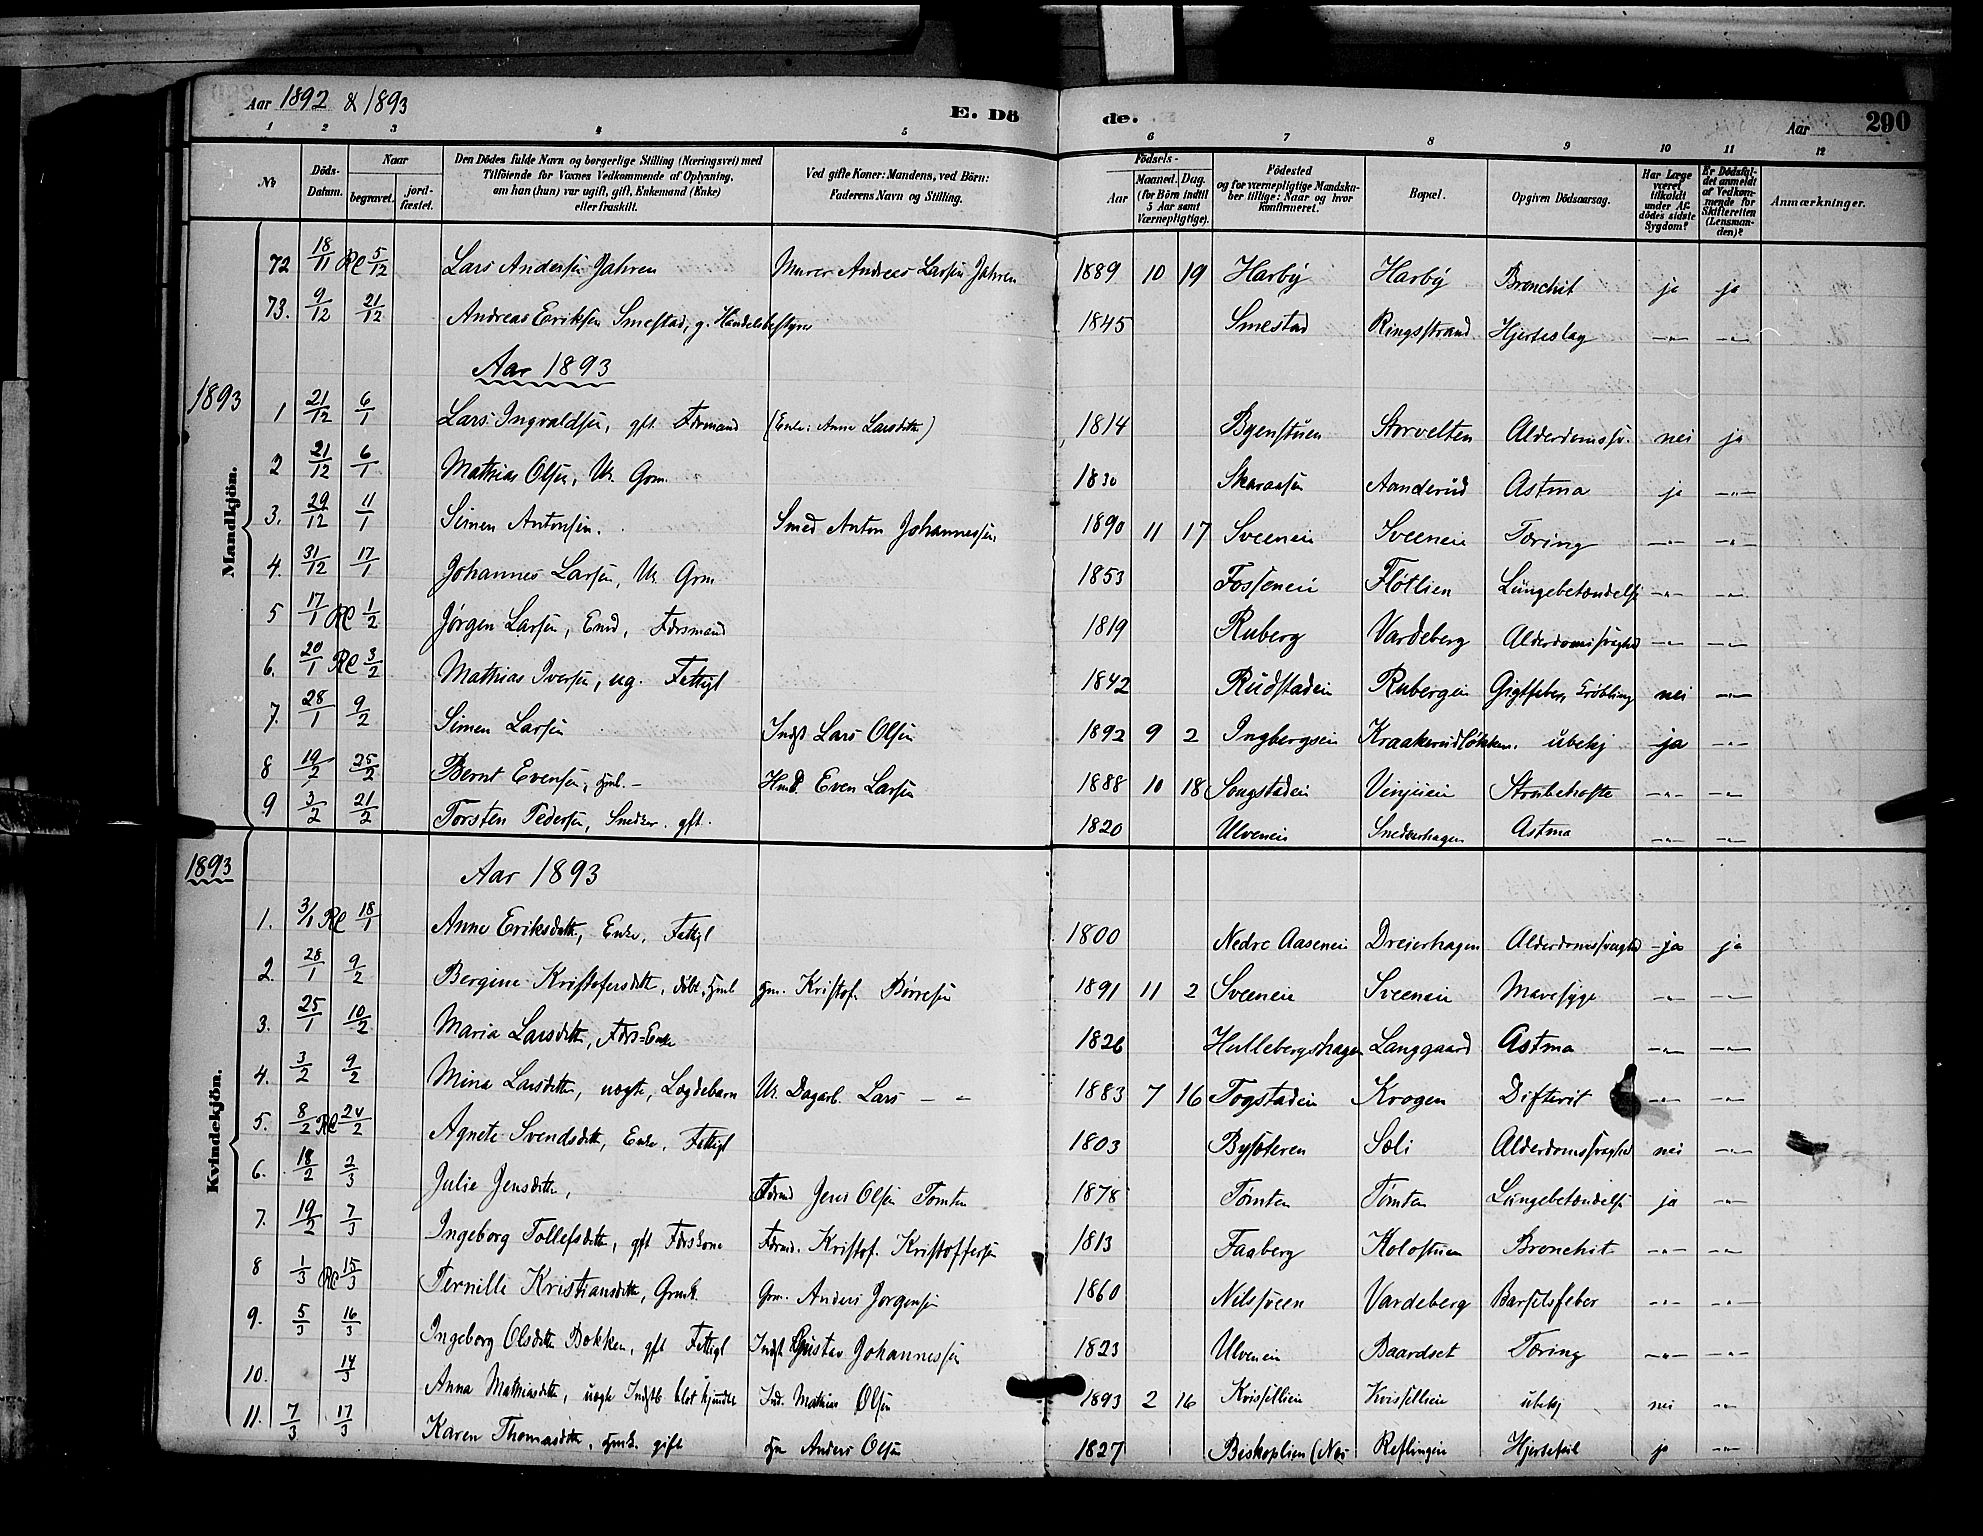 Aar 1892 & 1893 E. Dö de. Aar 290
1 2 3 4 5 6 7 8 9 10 11 12
No Döds-Datum. Naar begravet. jordfæstet. Den Dödes fulde Navn og borgerlige Stilling (Næringsvei) med Tilföiende for Voxnes Vedkommende af Oplysning, om han (hun) var ugift, gift, Enkemand (Enke) eller fraskilt. Ved gifte Koner: Mandens, ved Börn: Faderens Navn og Stilling. Födsels- Aar Maaned. Dag. (for Börn indtil 5 Aar samt Værnepligtige). Födested og for værnepligtige Mandskaber tillige: Naar og hvor konfirmeret. Bopæl. Opgiven Dödsaarsag. Har Læge været tilkaldt under Afdödes sidste Sygdom? Er Dödsfaldet anmeldt af Vedkommende for Skifteretten (Lensmanden)? Anmærkninger.
Mandkjön.
72 18/11 RC 5/12 Lars Andersen Jahren Murer Andreas Larsen Jahren 1889 10 19 Harby Harby Bronchit ja ja
73. 9/12 21/12 Andreas Eriksen Smestad, g. Handelsbestyrer 1845 Smestad Ringsstrand Hjerteslag -"- -"-
1893 Aar 1893
1 21/12 6/1 Lars Ingvaldsen, gft. Fdrmand (Enke: Anne Larsdtr) 1814 Byenstuen Storvelten Alderdomssv. nei ja
2 21/12 6/1 Mathias Olsen, Ur. Grm. 1830 Skaraasen Aanderud Astma ja -"-
3. 29/12 11/1 Simen Antonsen. Smed Anton Johannessen 1890 11 17 Sveeneie Sveeneie Tæring -"- -"-
4. 31/12 17/1 Johannes Larsen, Ur. Grm 1853 Fosseneie Flotlien Lungebetændelse -"- -"-
5 17/1 RC 1/2 Jørgen Larsen, Emd, Fdrsmand 1819 Ruberg Vardeberg Alderdomssvaghed -"- -"-
6. 20/1 RC 3/2 Mathias Iversen, ug. Fattigl 1842 Rudstadeie Rubergeie Gigtfeber, Krøbling nei -"-
7. 28/1 9/2 Simen Larsen Indst Lars Olsen 1892 9 2 Ingbergseie Kraakerudløkken. ubekj ja -"-
8 19/2 25/2 Bernt Evensen, hjml. - Hmd. Even Larsen 1888 10 18 Songstadeie Vinjueie Strubehoste -"- -"-
9 3/2 21/2 Torsten Pedersen, Snedker. gft. 1820 Ulveneie Snekkerhagen Astma -"- -"-
1893 Aar 1893
Kvindekjön.
1. 3/1 RC 18/1 Anne Eriksdtr, Enke, Fattigl 1800 Nedre Aaseneie Dreierhagen Alderdomssvaghed ja ja
2. 28/1 9/2 Bergine Kristofersdtr, døbt, hjml gm. Kristof. Børresen 1891 11 2 Sveeneie Sveeneie Mavesyge -"- -"-
3. 25/1 10/2 Maria Larsdtr, Fdrs=Enke 1826 Hullebergshagen Langgaard Astma -"- -"-
4. 3/2 9/2 Mina Larsdtr, uægte, Lægdebarn Ur. Dagarb. Lars - " 1883 7 16 Togstadeie Krogen Difterit -"- -"-
5. 8/2 RC 24/2 Agnete Svendsdtr, Enke, Fattigl 1803 Bysæteren Sæli Alderdomssvaghed nei -"-
6. 18/2 2/3 Julie Jensdtr, Fdrmd Jens Olsen Tomten 1878 Tomten Tomten Lungebetændelse ja -"-
7. 19/2 7/3 Ingeborg Tollefsdtr, gft Fdrskone Fdrmd. Kristof. Kristoffersen 1813 Faaberg Kolostuen Bronchit -"- -"-
8 1/3 RC 15/3 Pernille Kristiansdtr, Grmk. Grm. Anders Jørgensen 1860 Nilssveen Vardeberg Barselsfeber -"- -"-
9. 5/3 16/3 Ingeborg Olsdtr Bakken, gft Fattigl Indst Gustav Johannessen 1823 Ulveneie Baardset Tæring -"- -"-
10. 14/3 Anna Mathiasdtr, uægte Ind. Mathias Olsen 1893 2 16 Kvisellien Kvisellien ubekj nei -"-
11. 7/3 17/3 Karen Thomasdtr, gift Anders Olsen 1827 Biskoplien (Næs Reflingeie Hjertefeil ja -"-